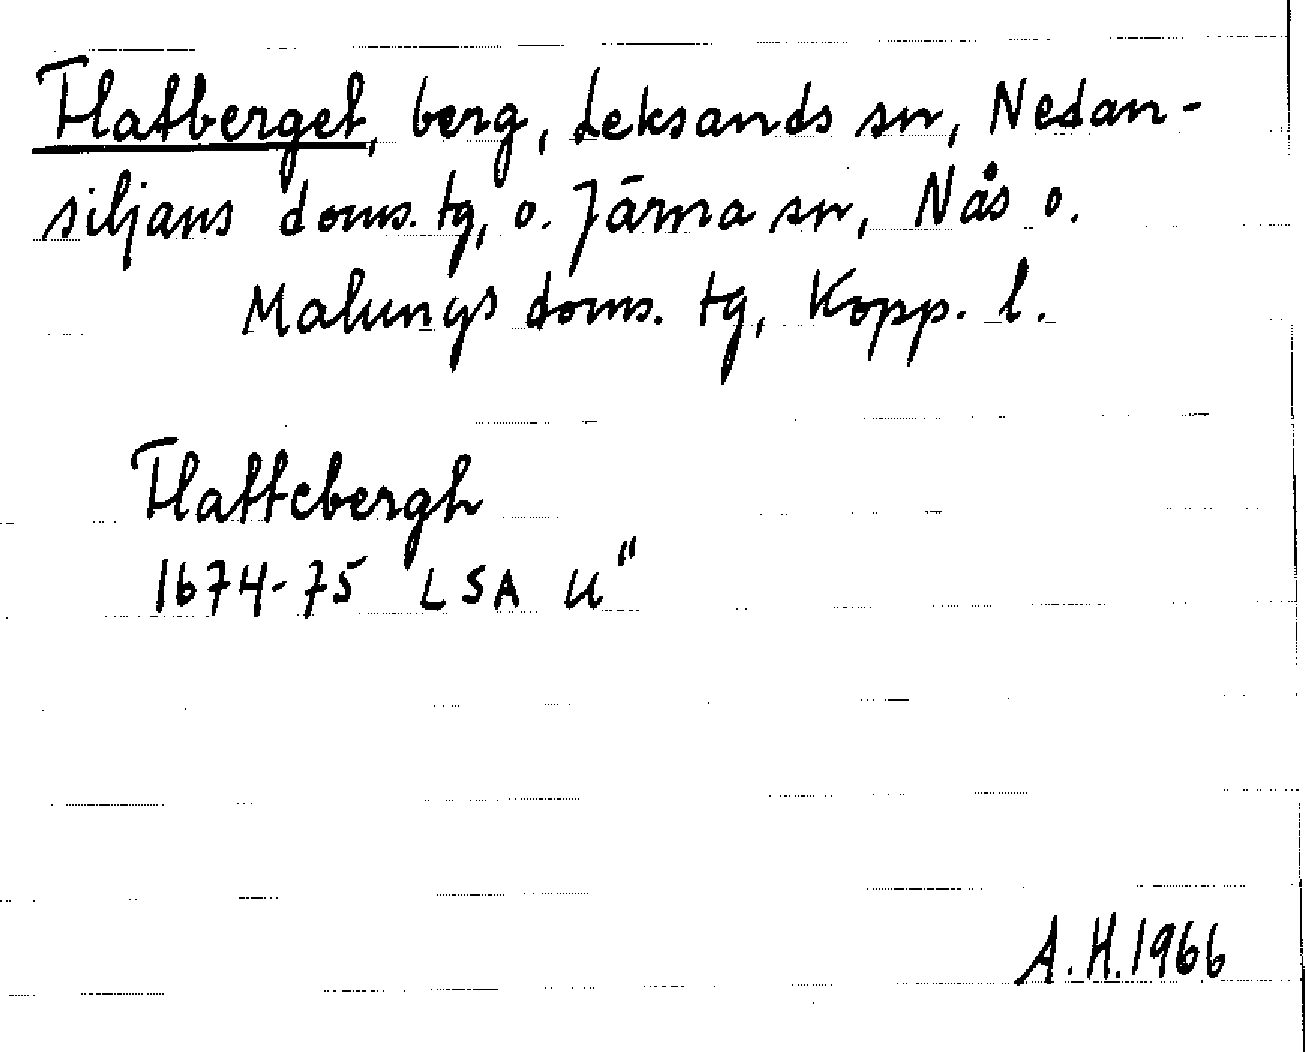 Flatberget, berg, Leksands sn, Nedan-
siljans doms. tg, o. Järna sn, Nås o.
Malungs doms. tg, Kopp. l.
Flattebergh
1674-75 LSA U"
A.H. 1966